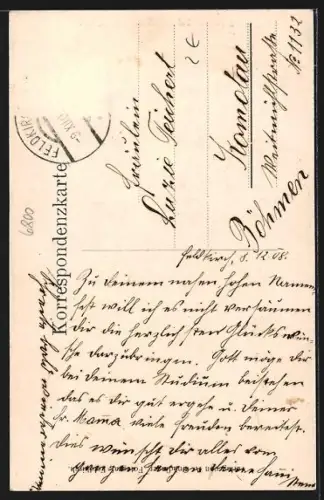 Korrespondenzkarte
FELDKIRCH
-9.XII
6800
Fräulein
Luzie Teichert
Komotau
Weitmühlstraße
No 1132
Böhmen
Feldkirch, 8. 12. 08.
Zu deinem nahen hohen Namens-
fest will ich es nicht versäumen
Dir die herzlichsten Glückswün-
sche darzubringen. Gott möge dir
bei deinem Studium beistehen
das es dir gut ergehe u. deiner
Fr. Mama viele freuden bereitest.
Dies wünscht dir alles von
herzen deine